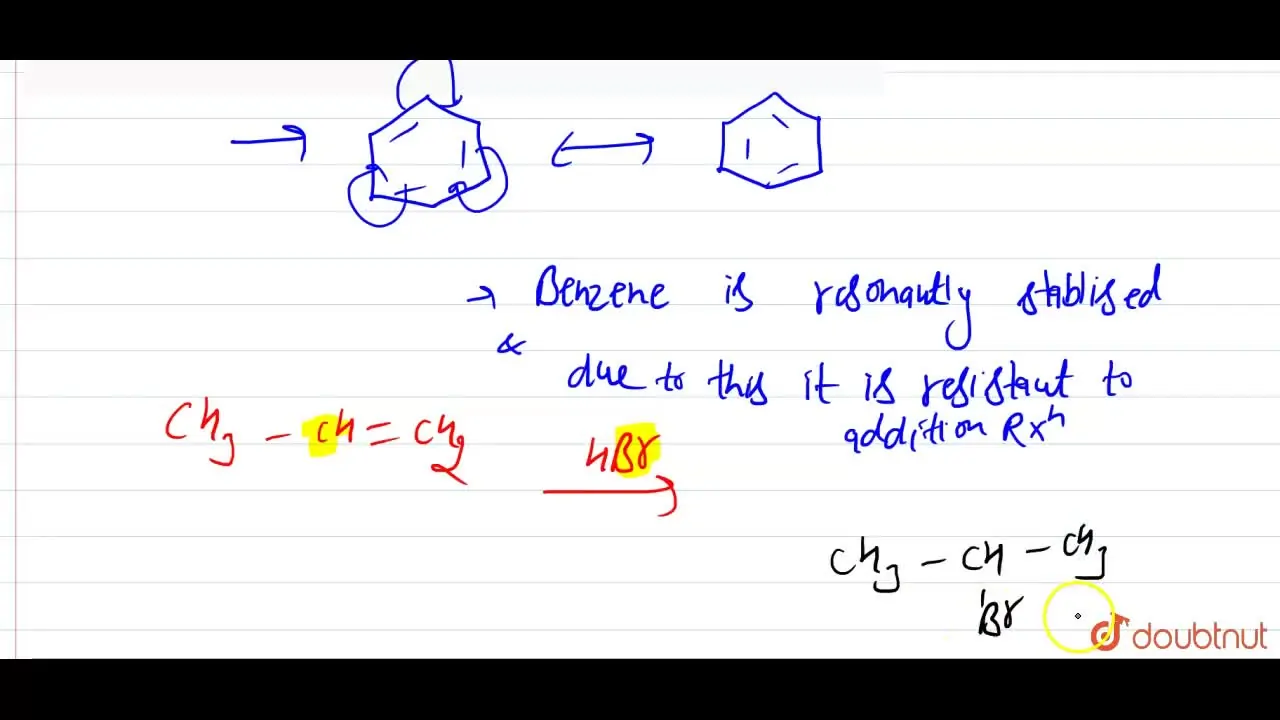 → Benzene is resonantly stablised
& due to this it is resistant to
addition Rxⁿ
CH₃ – CH = CH₂
HBr
CH₃ – CH – CH₃
Br
doubtnut